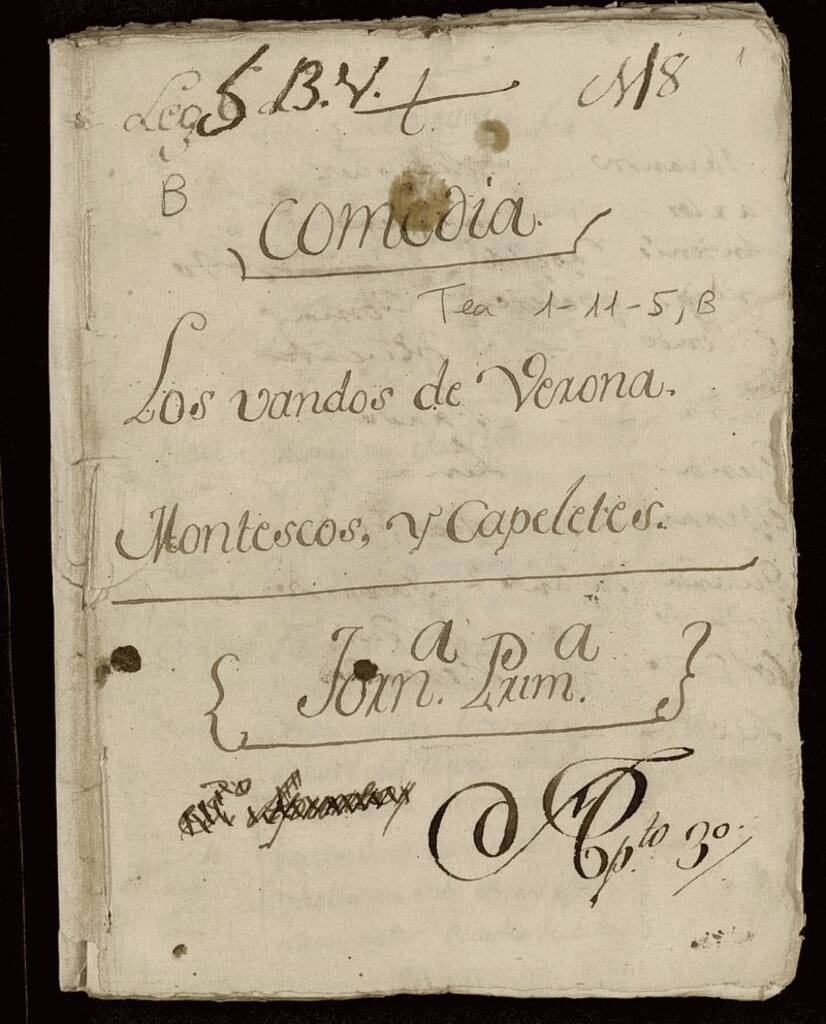 Leg 5 B.V. N 8
B
Comedia.
Tea 1-11-5, B
Los vandos de Verona.
Montescos, y Capeletes.
Jorn.a Prim.a
Ap.to 3º